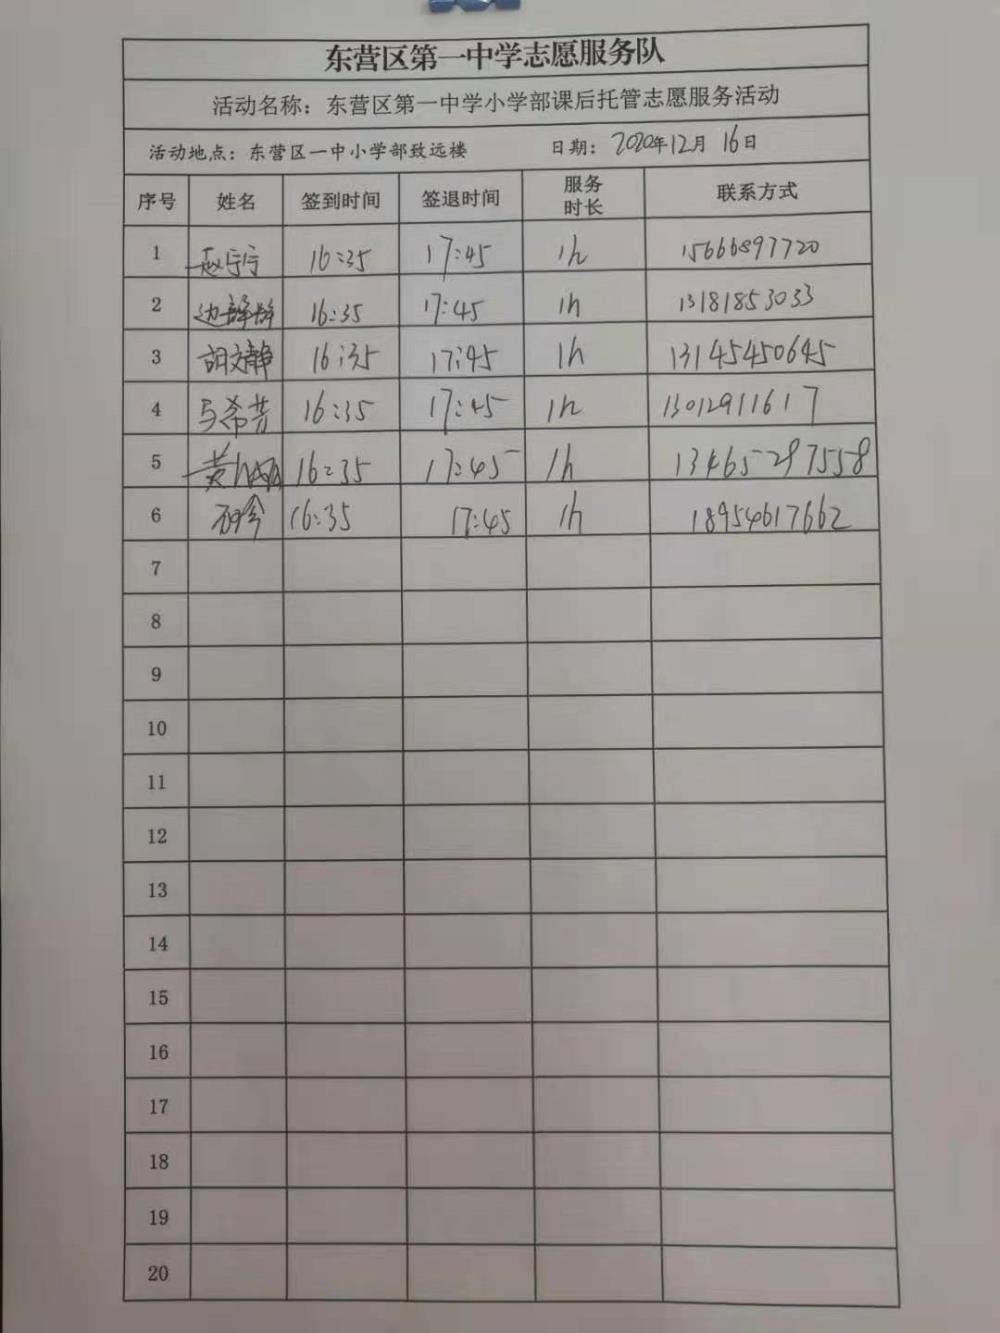 东营区第一中学志愿服务队
活动名称：东营区第一中学小学部课后托管志愿服务活动
活动地点：东营区一中小学部致远楼 日期：2020年12月16日
序号 姓名 签到时间 签退时间 服务时长 联系方式
1 赵宁宁 16:35 17:45 1h 15666897720
2 边静静 16:35 17:45 1h 13181853033
3 胡文静 16:35 17:45 1h 13145450645
4 马希芳 16:35 17:45 1h 13012911617
5 黄 16:35 17:45 1h 13465297558
6 16:35 17:45 1h 18954617662
7
8
9
10
11
12
13
14
15
16
17
18
19
20